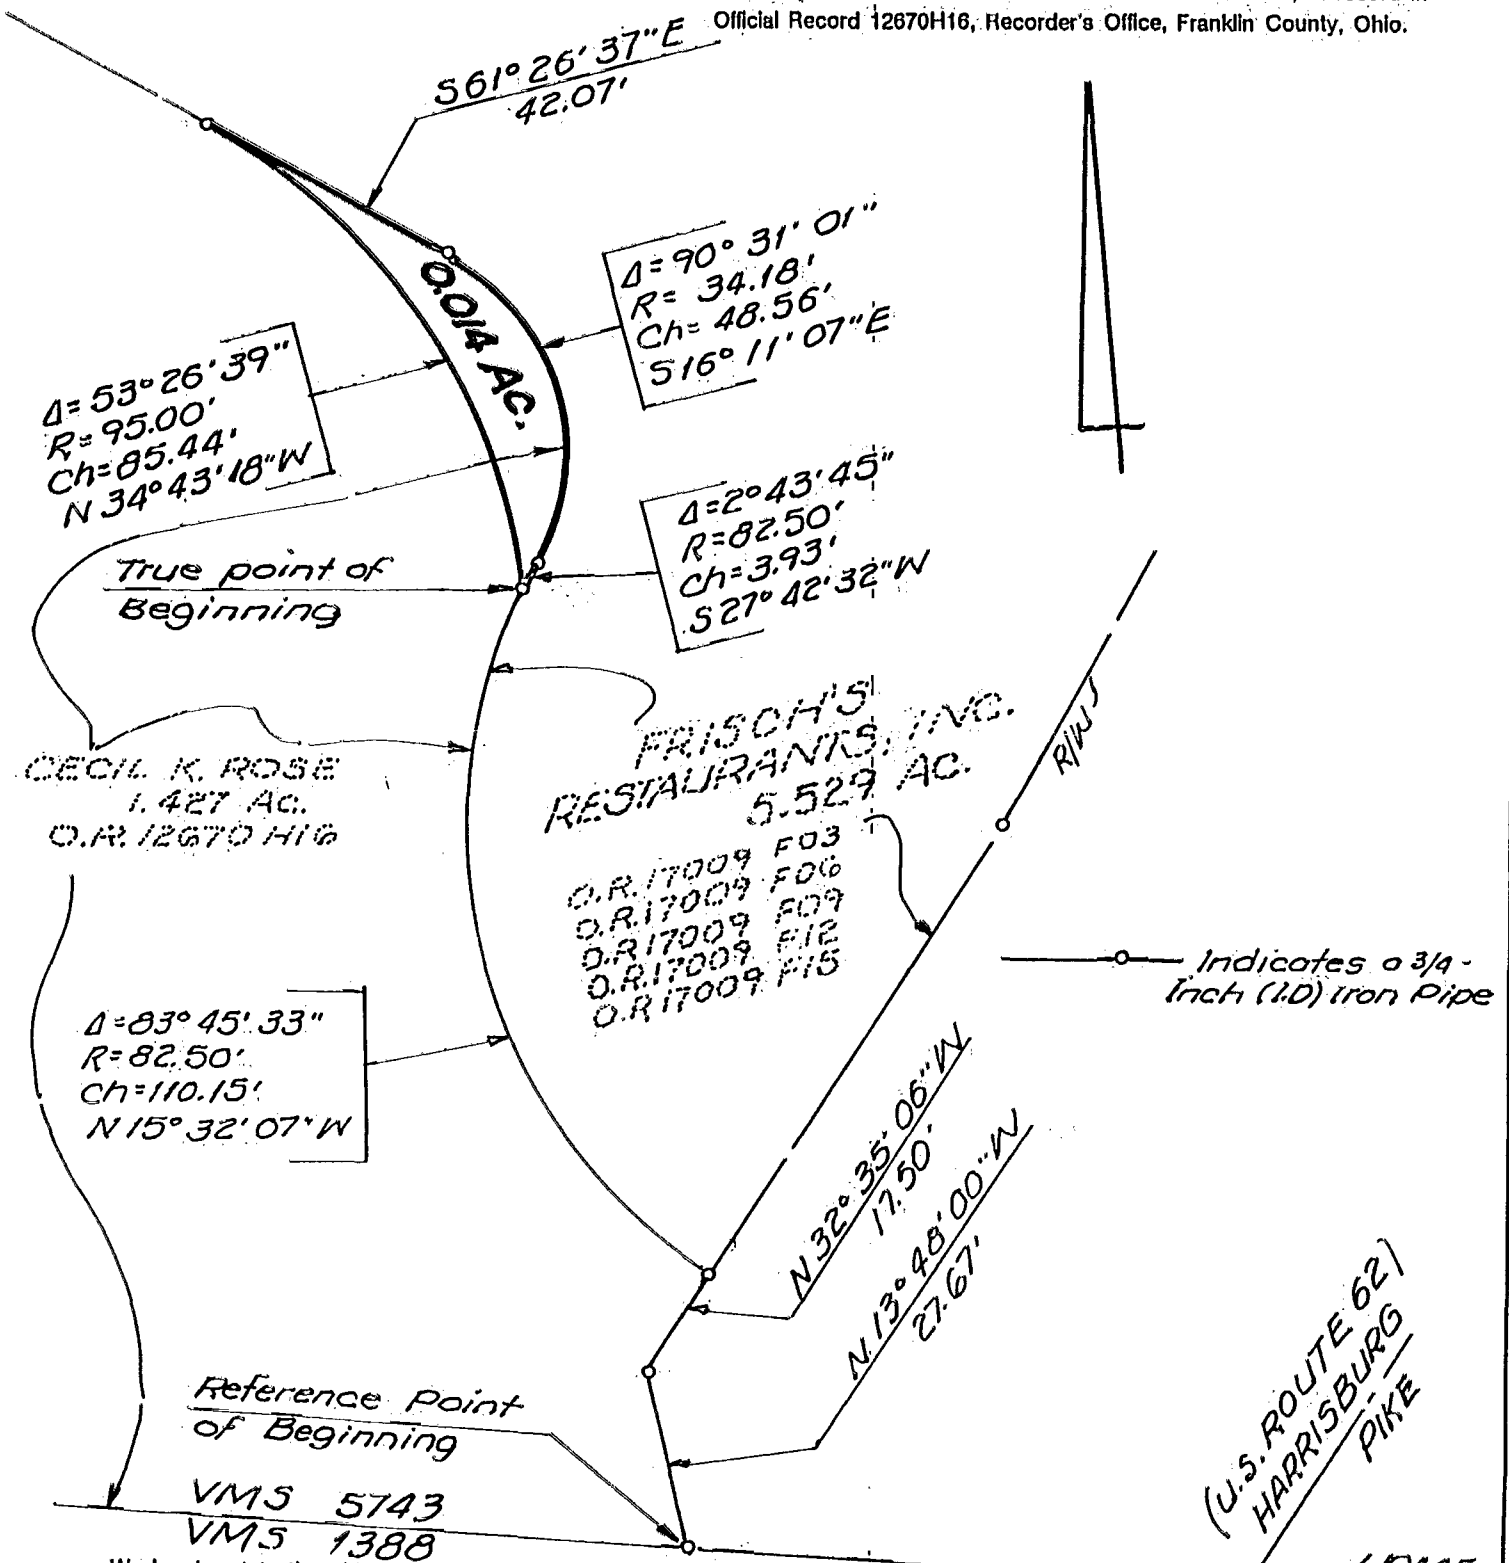 Official Record 12670H16, Recorder's Office, Franklin County, Ohio.
S61° 26' 37"E
42.07'
Δ=90° 31' 01"
R= 34.18'
Ch= 48.56'
S16° 11' 07"E
0.014 AC.
Δ=53° 26' 39"
R=95.00'
Ch=85.44'
N 34° 43' 18"W
Δ=2° 43' 45"
R=82.50'
Ch=3.93'
S 27° 42' 32"W
True point of
Beginning
FRISCH'S
RESTAURANTS, INC.
5.529 AC.
O.R. 17009 F03
O.R. 17009 F06
O.R 17009 F09
O.R. 17009 F12
O.R 17009 F15
R/W
CECIL K. ROSE
1.427 Ac.
O.R. 12670 H16
Indicates a 3/4-
Inch (I.D) Iron Pipe
Δ=83° 45' 33"
R=82.50'
Ch=110.15'
N 15° 32' 07" W
N 32° 35' 06" W
17.50'
N 13° 48' 00" W
27.67'
Reference Point
of Beginning
VMS 5743
VMS 1388
(U.S. ROUTE 62)
HARRISBURG
PIKE